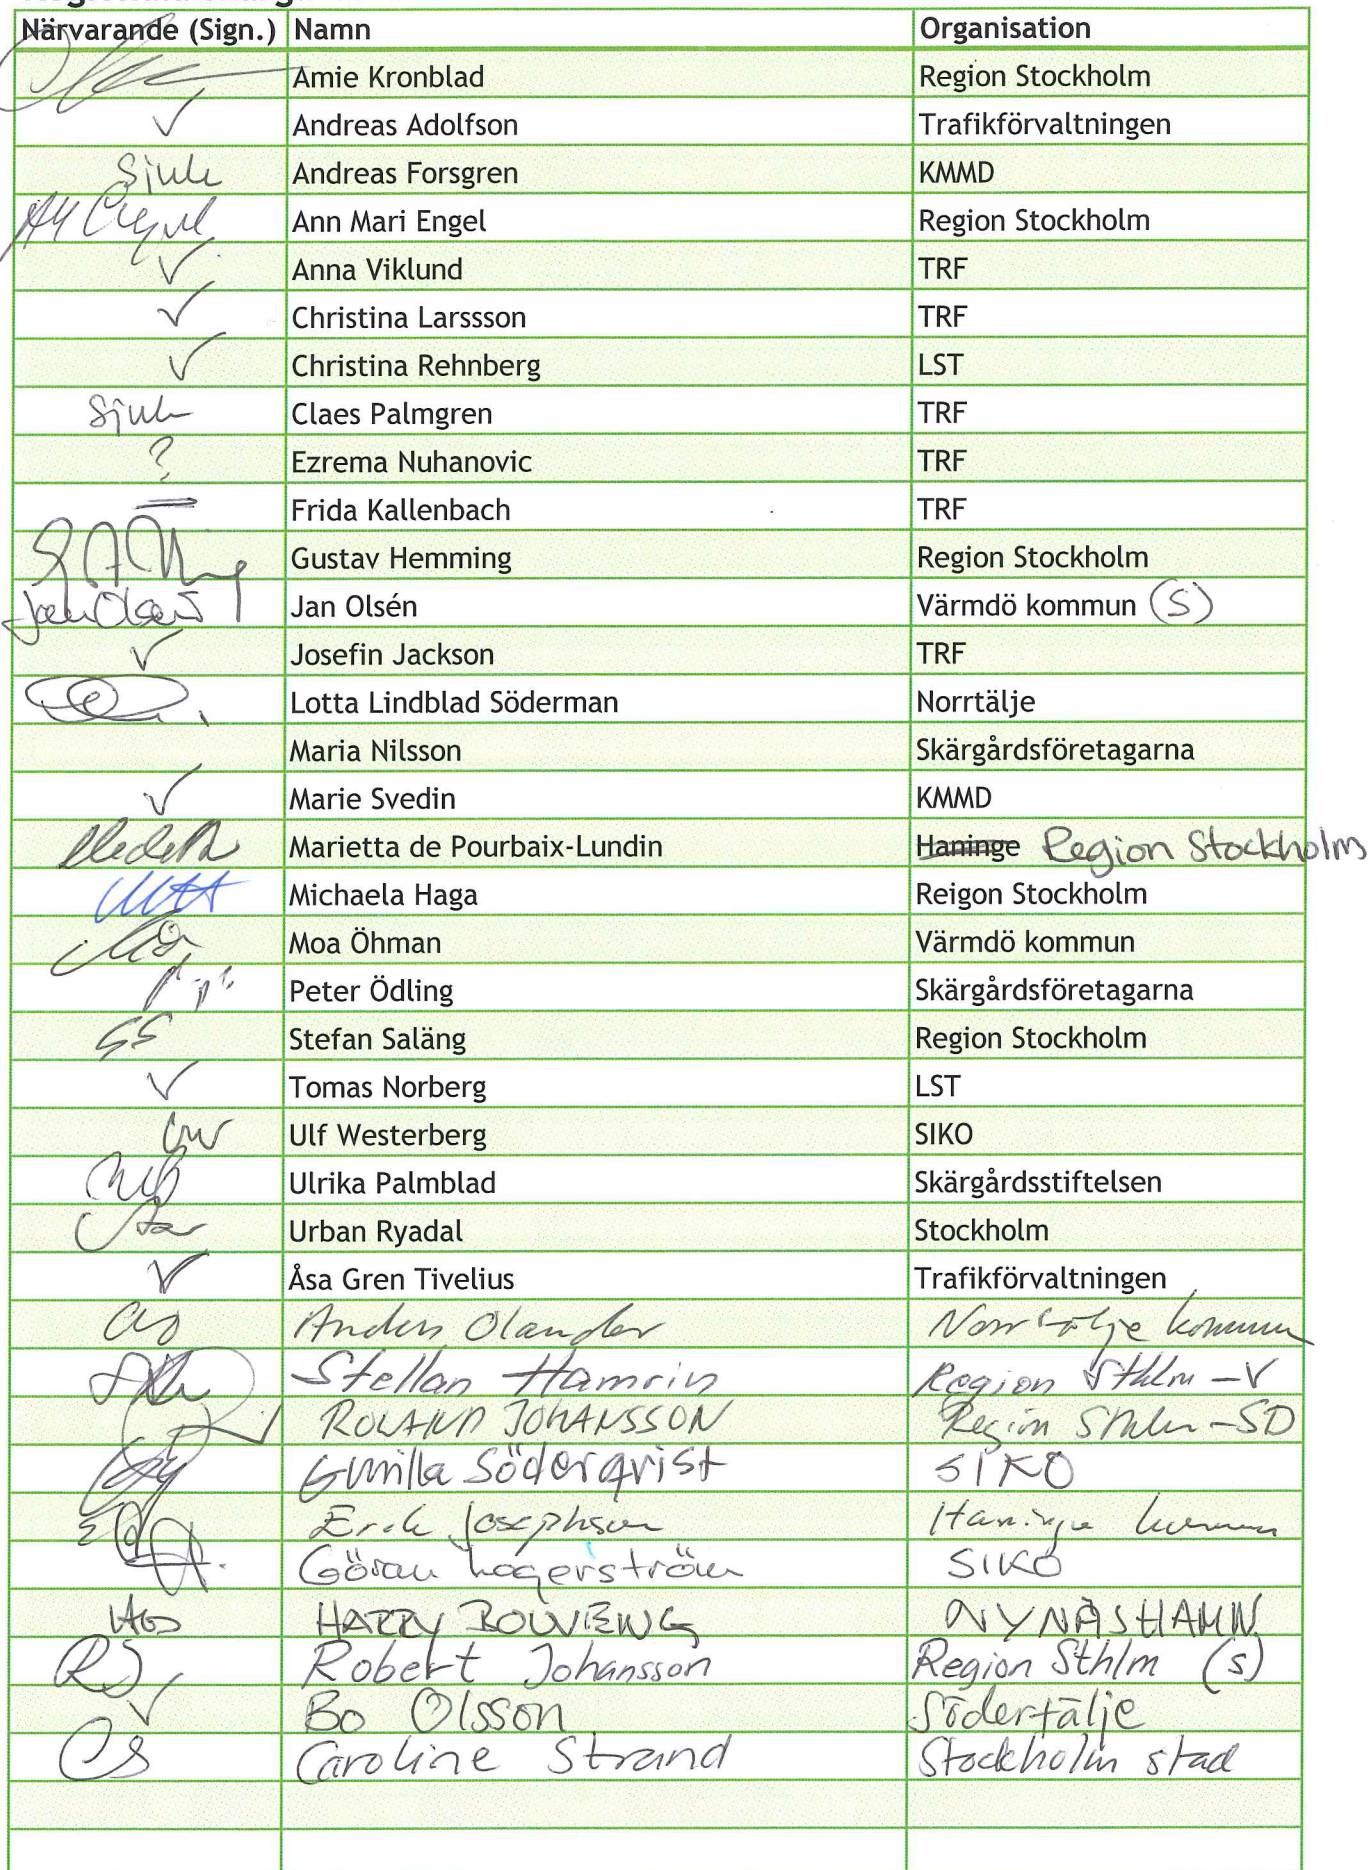 Närvarande (Sign.) Namn Organisation
Amie Kronblad Region Stockholm
✓ Andreas Adolfson Trafikförvaltningen
Sjuk Andreas Forsgren KMMD
AM Engel Ann Mari Engel Region Stockholm
✓ Anna Viklund TRF
✓ Christina Larssson TRF
✓ Christina Rehnberg LST
Sjuk Claes Palmgren TRF
? Ezrema Nuhanovic TRF
Frida Kallenbach TRF
Gustav Hemming Region Stockholm
Jan Olsén Jan Olsén Värmdö kommun (S)
✓ Josefin Jackson TRF
Lotta Lindblad Söderman Norrtälje
Maria Nilsson Skärgårdsföretagarna
✓ Marie Svedin KMMD
Marietta de Pourbaix-Lundin Haninge Region Stockholm
MH Michaela Haga Reigon Stockholm
Moa Öhman Värmdö kommun
Peter Ödling Skärgårdsföretagarna
SS Stefan Saläng Region Stockholm
✓ Tomas Norberg LST
UW Ulf Westerberg SIKO
Ulrika Palmblad Skärgårdsstiftelsen
Urban Ryadal Stockholm
✓ Åsa Gren Tivelius Trafikförvaltningen
AO Anders Olander Norrtälje kommun
Stellan Hamrin Region Sthlm - V
ROLAND JOHANSSON Region Sthlm - SD
Gunilla Söderqvist SIKO
Erik Josephson Haninge kommun
Göran Lagerström SIKO
HARRY BOUVENG NYNÄSHAMN
RJ Robert Johansson Region Sthlm (s)
✓ Bo Olsson Södertälje
CS Caroline Strand Stockholm stad